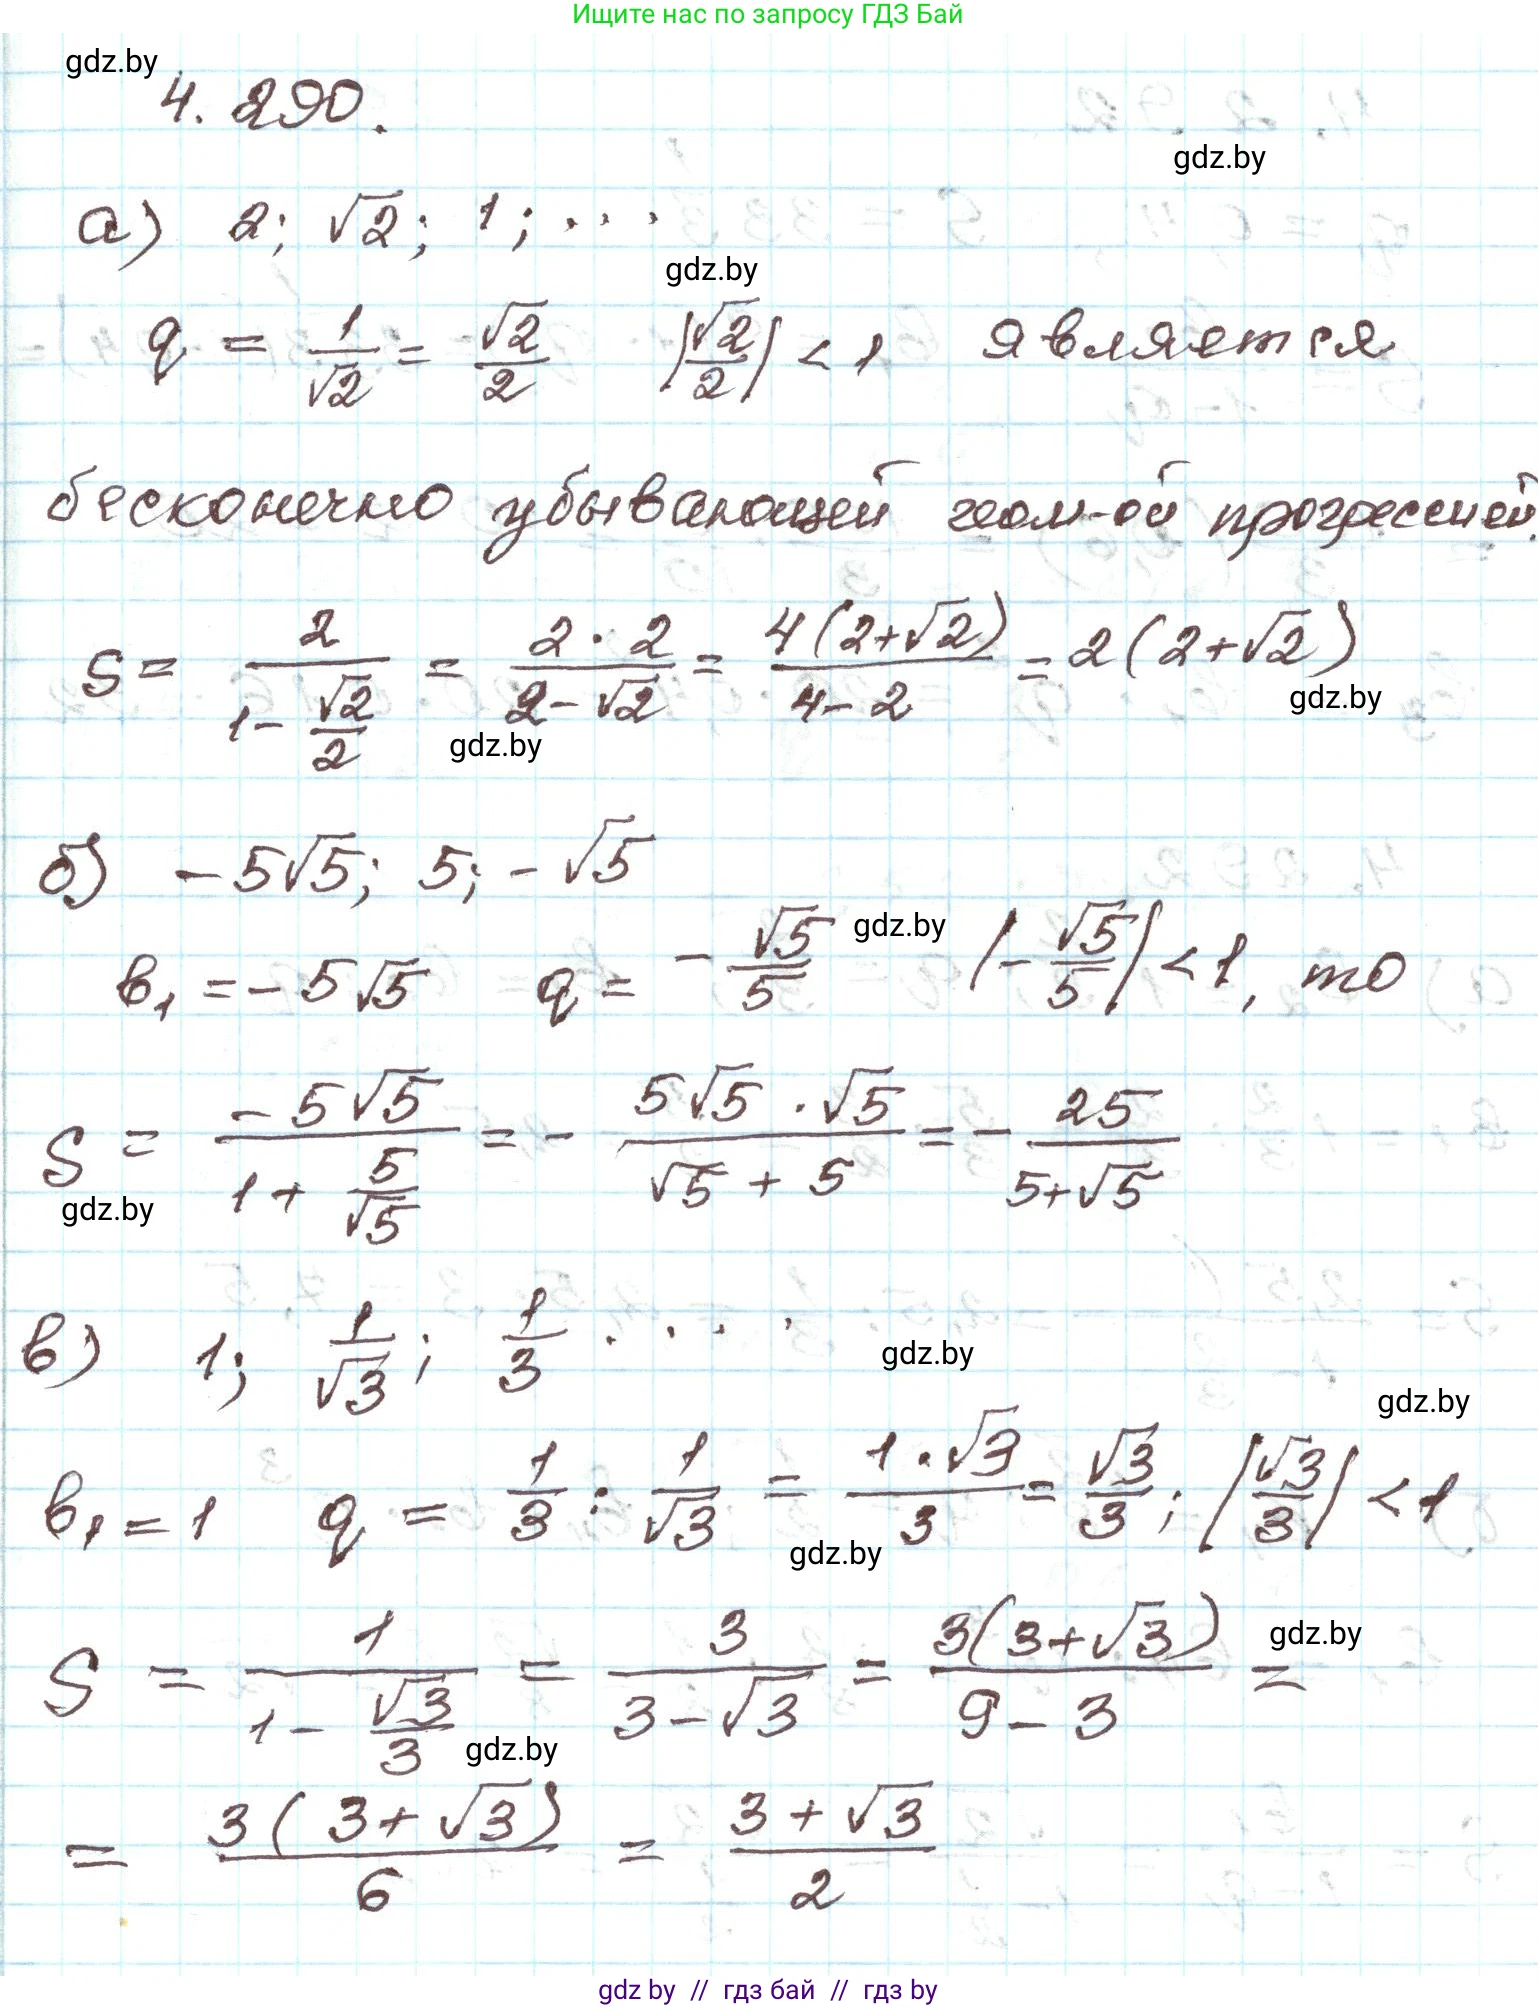 Ищите нас по запросу ГДЗ Бай
gdz.by
4.290.
gdz.by
а) 2; √2; 1; ....
gdz.by
q = 1/√2 = √2/2 |√2/2| < 1 является
бесконечно убывающей геом-ой прогрессией.
S = 2/(1 - √2/2) = (2 · 2)/(2 - √2) = 4(2+√2)/(4 - 2) = 2(2+√2)
gdz.by
gdz.by
б) -5√5; 5; -√5
gdz.by
в₁ = -5√5 q = -√5/5 |-√5/5| < 1, то
S = -5√5/(1 + 5/√5) = - (5√5 · √5)/(√5 + 5) = - 25/(5+√5)
gdz.by
в) 1; 1/√3; 1/3 ....
gdz.by
gdz.by
в₁ = 1 q = 1/3 : 1/√3 = (1·√3)/3 = √3/3; |√3/3| < 1.
gdz.by
S = 1/(1 - √3/3) = 3/(3 - √3) = 3(3+√3)/(9 - 3) =
gdz.by
gdz.by
= 3(3+√3)/6 = (3+√3)/2
gdz by // гдз бай // гдз by